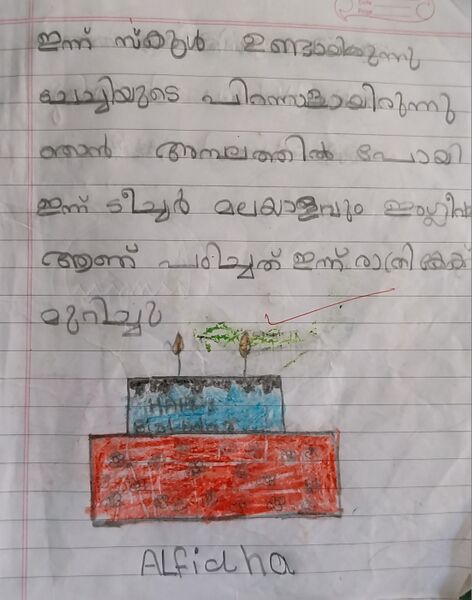 ഇന്ന് സ്കൂൾ ഉണ്ടായിരുന്നു
ചേച്ചിയുടെ പിറന്നാളായിരുന്നു
ഞാൻ അമ്പലത്തിൽ പോയി
ഇന്ന് ടീച്ചർ മലയാളവും ഇംഗ്ലീഷ
ആണ് പഠിച്ചത് ഇന്ന് രാത്രി കേക്ക്
മുറിച്ചു
ALfidha